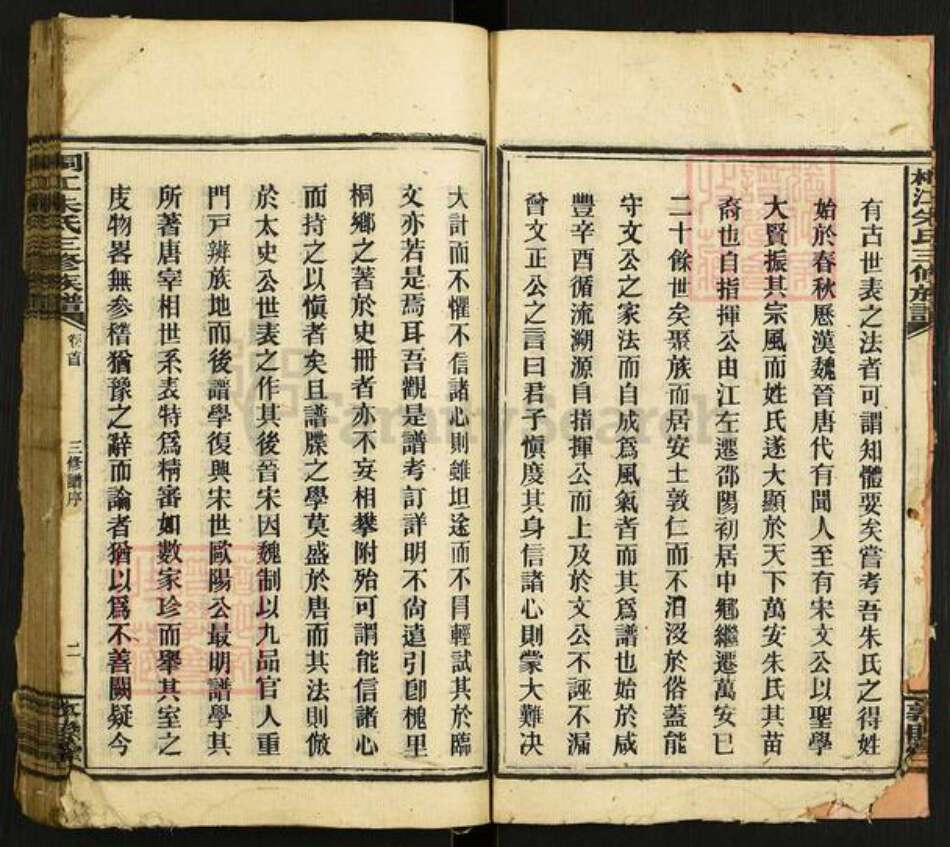 有古世表之法者可謂知體要矣嘗考吾朱氏之得姓
始於春秋厯漢魏晉唐代有聞人至有宋文公以聖學
大賢振其宗風而姓氏遂大顯於天下萬安朱氏其苗
裔也自指揮公由江左遷邵陽初居中鄉繼遷萬安已
二十餘世矣聚族而居安土敦仁而不汨沒於俗蓋能
守文公之家法而自成爲風氣者而其爲譜也始於咸
豐辛酉循流溯源自指揮公而上及於文公不誣不漏
曾文正公之言曰君子愼度其身信諸心則蒙大難決
大計而不懼不信諸心則雖坦途而不肎輕試其於臨
文亦若是焉耳吾觀是譜考訂詳明不尙遠引卽槐里
桐鄉之著於史冊者亦不妄相攀附殆可謂能信諸心
而持之以愼者矣且譜牒之學莫盛於唐而其法則倣
於太史公世表之作其後晉宋因魏制以九品官人重
門戸辨族地而後譜學復興宋世歐陽公最明譜學其
所著唐宰相世系表特爲精審如數家珍而舉其室之
庋物畧無參稽猶豫之辭而論者猶以爲不善闕疑今
江朱氏三修族譜
卷首
三修譜序
二
Family Search